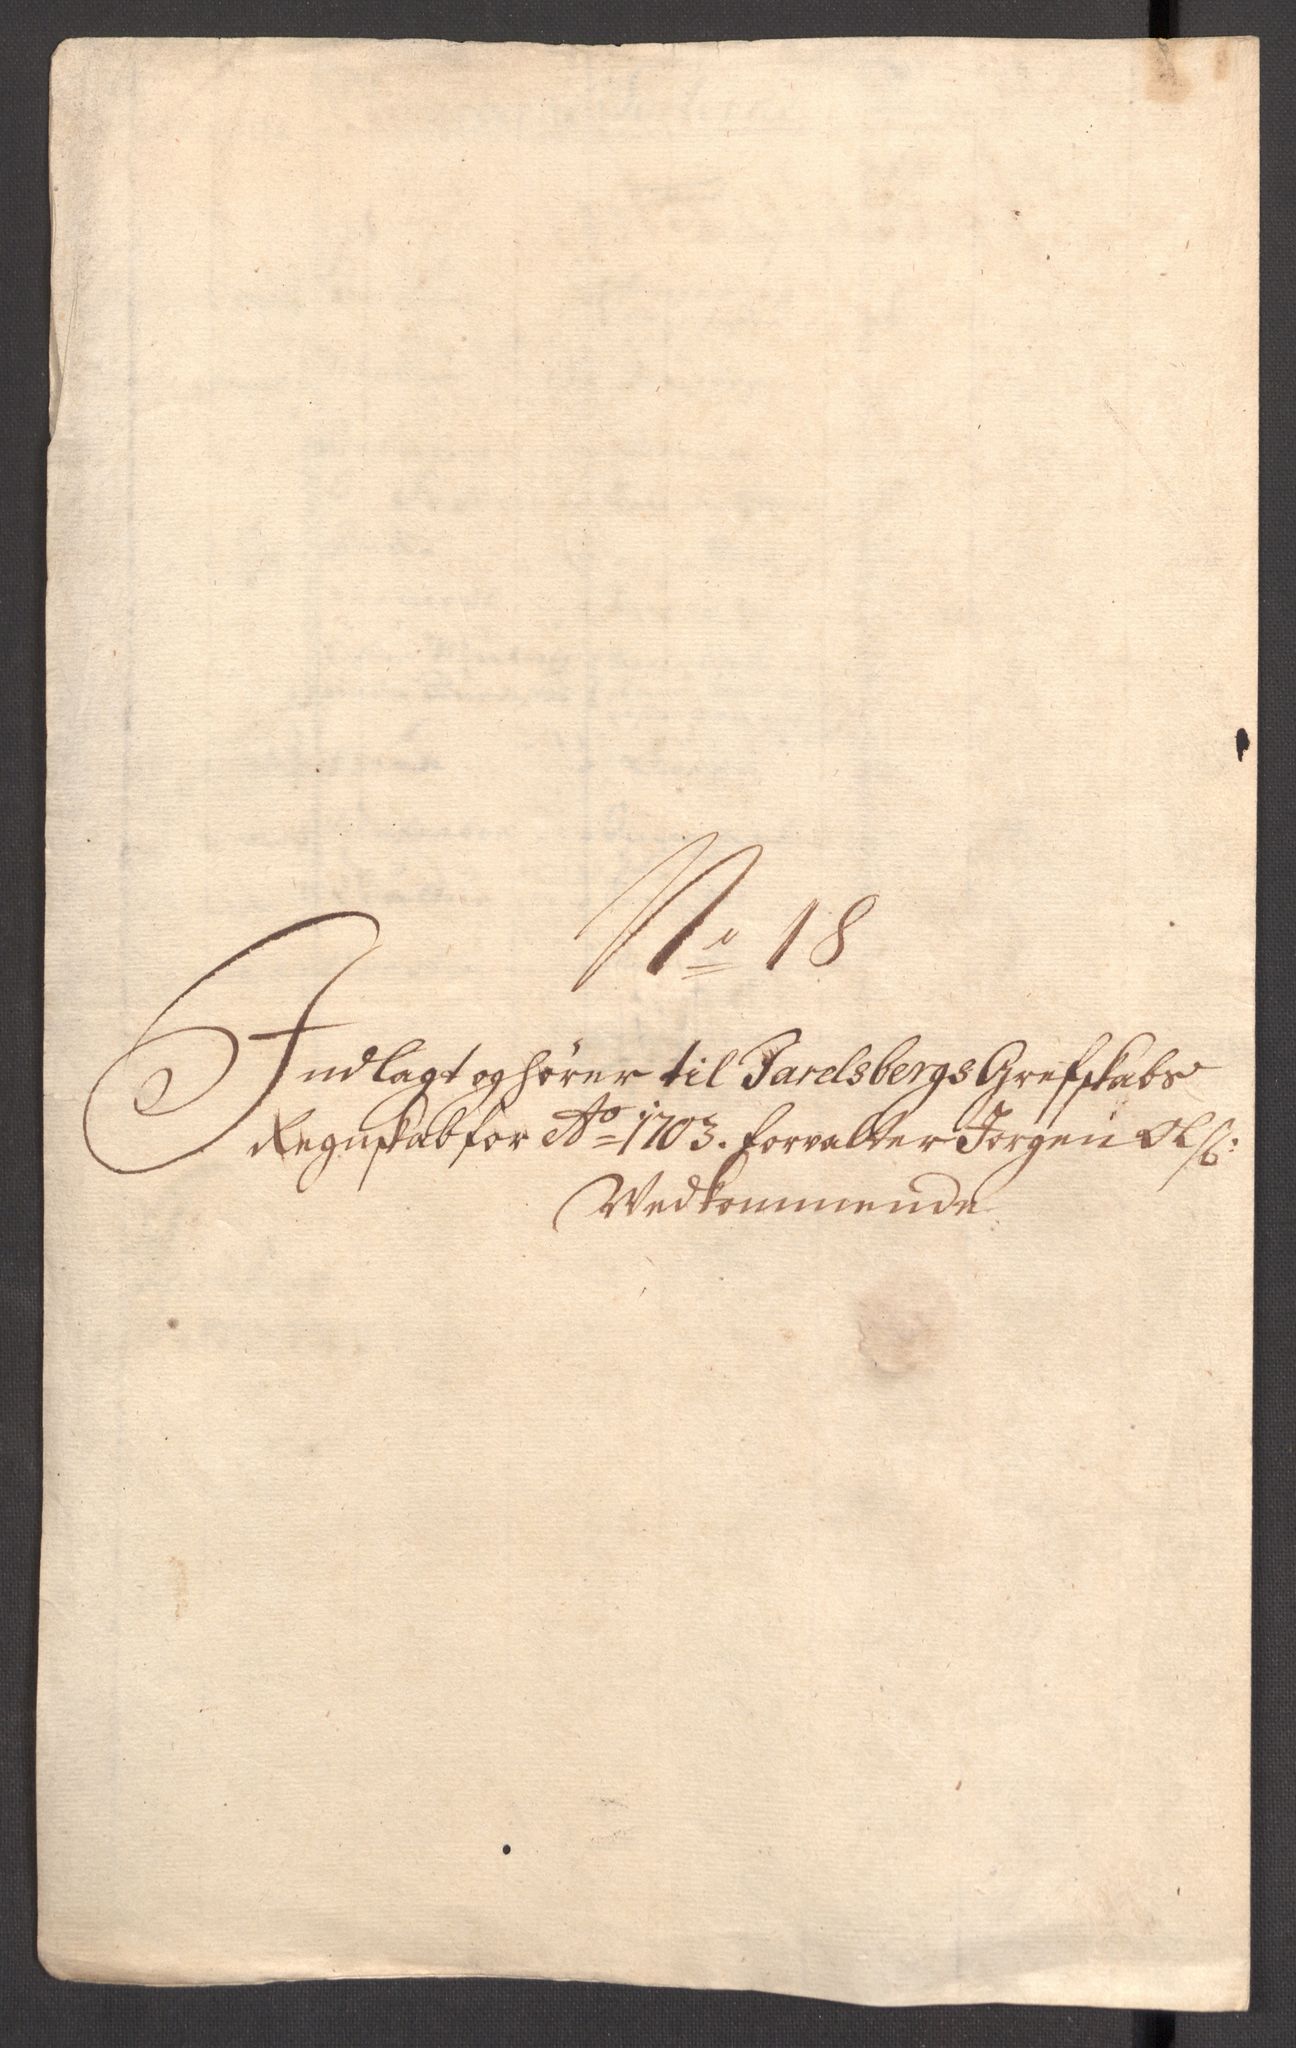 No 18
Indlagt og hører til Jarelsbergs Grefskabs
Regnskab for Ao 1703. forvalter Jørgen Olß:
Vedkommende